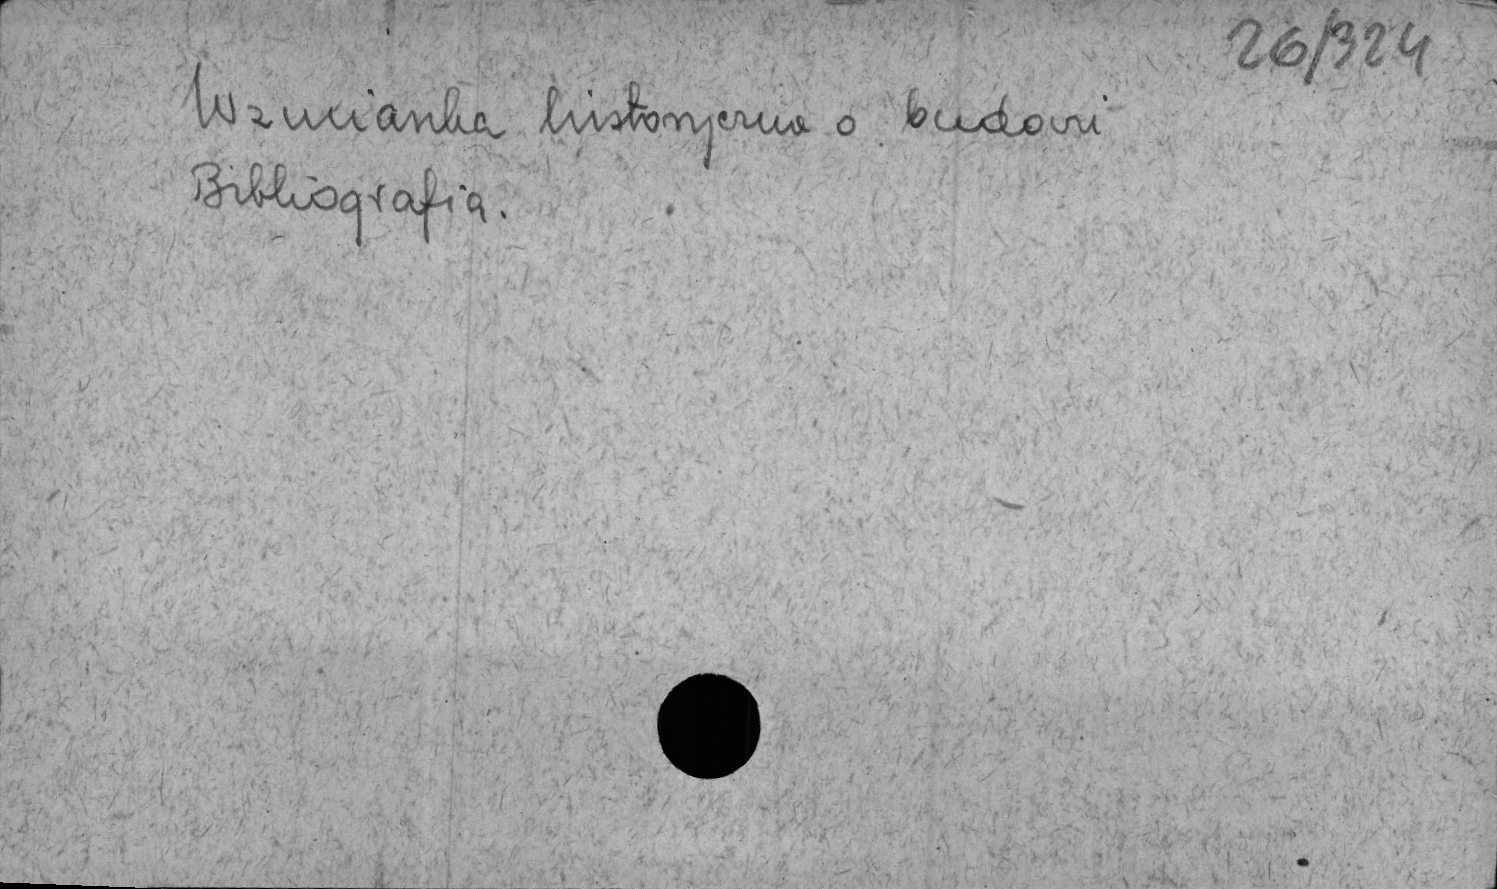 26/324
Wzmianka historyczna o budowi
Bibliografia.